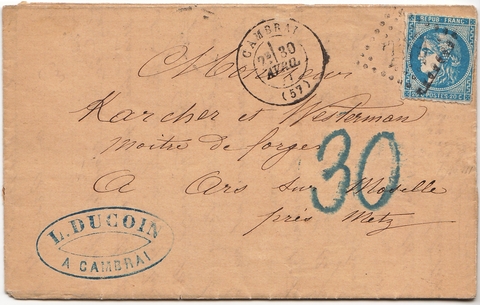 CAMBRAI
30
AVRIL
71
(57)
REPUB FRANC
POSTES 20 C
Messieurs
Karcher et Westerman
Maitre de forges
A Ars sur Moselle
près Metz
30
L. DUCOIN
A CAMBRAI